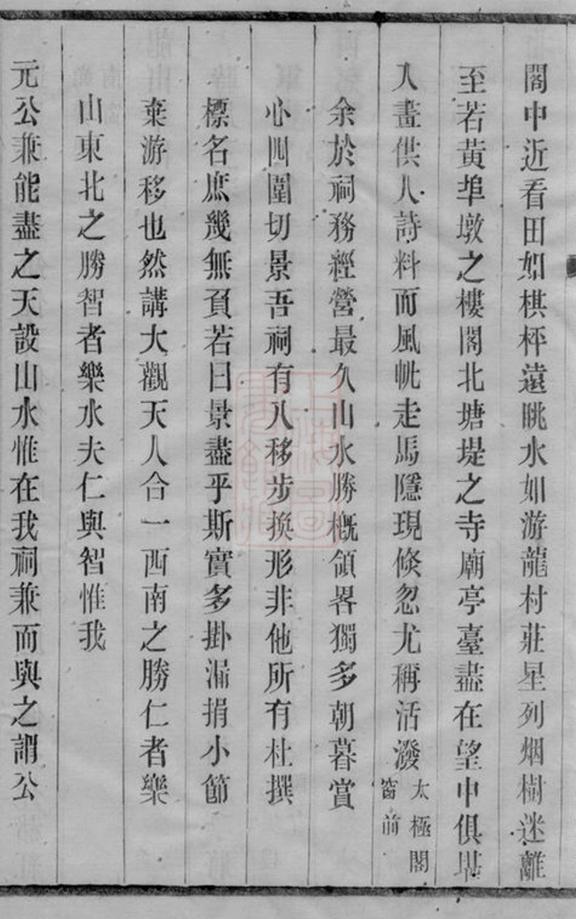 閣中近看田如棋枰遠眺水如游龍村莊星列烟樹迷離
至若黃埠墩之樓閣北塘堤之寺廟亭臺盡在望中俱堪
入畫供人詩料而風帆走馬隱現倏忽尤稱活潑太極閣窗前
余於祠務經營最久山水勝概領畧獨多朝暮賞
心四圍切景吾祠有八移步換形非他所有杜撰
標名庶幾無負若曰景盡乎斯實多掛漏捐小節
棄游移也然講大觀天人合一西南之勝仁者樂
山東北之勝智者樂水夫仁與智惟我
元公兼能盡之天設山水惟在我祠兼而與之謂公